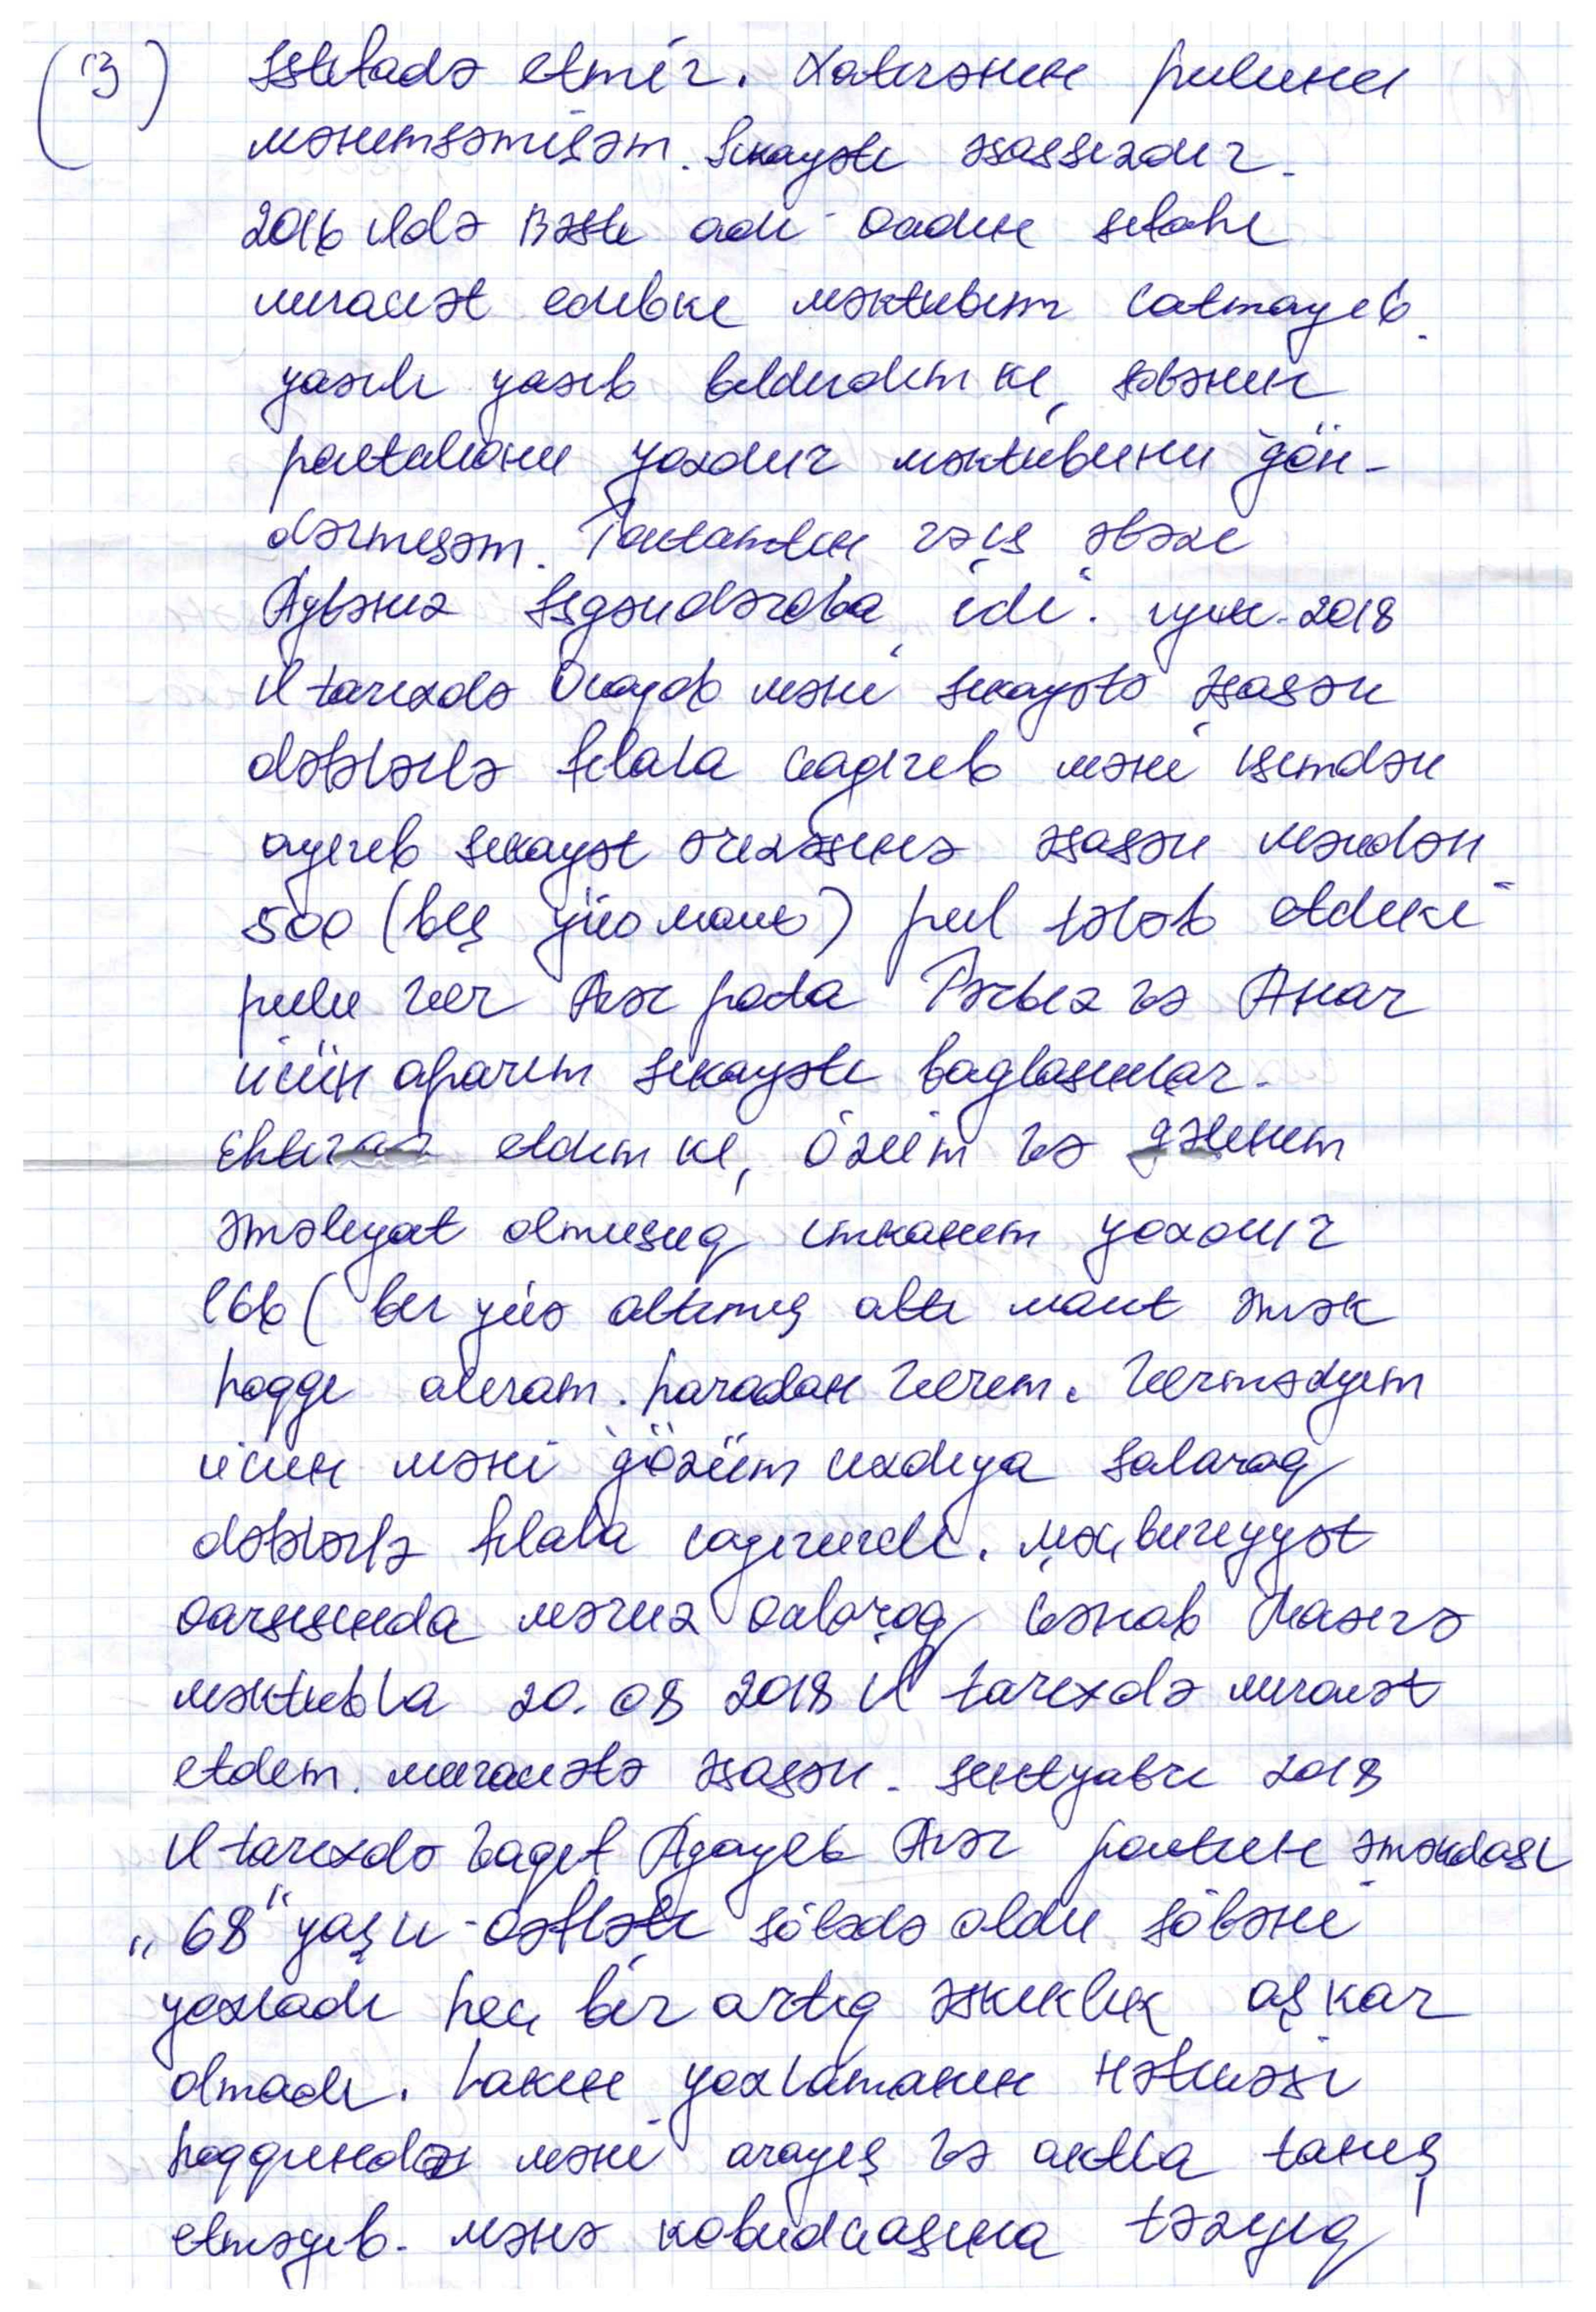 (3) İstifadə etmir. Xatirənin pulunu
mənimsəmişəm. Şikayəti əsassızdır.
2016 ildə Bəsti adlı qadın şifahi
müraciət edibki məktubum çatmayıb.
yazılı yazıb bildirdim ki, şöbənin
paçtalionu yoxdur məktubunu gön-
dərmişəm. Paçtamtın rəis əvəzi
Aybəniz İsgəndərova idi. iyun-2018
il tarixdə məni şikayətə əsasən
dəfələrlə filala çağırıb məni işimdən
ayırıb şikayət ərizəsinə əsasən məndən
500 (beş yüz manat) pul tələb etdiki
pulu ver Azər poçta Pərviz və Anar
üçün aparım şikayəti bağlasınlar.
Etiraz etdim ki, özüm və gəlinim
əməliyat olmuşuq imkanım yoxdur
166 (bir yüz altımış altı manat əmək
haqqı alıram. haradan verim. Vermədyim
üçün məni gözüm çıxdıya salaraq
dəfələrlə filala çağırırdı. Məcburiyyət
qarşısında məruz qalaraq Cənab Nazirə
məktubla 20.08 2018 il tarixdə müraciət
etdim. müraciətə əsasən. sentyabrı 2018
il tarixdə Vaqif Ağayev Azər poçtun əməkdaşı
"68" yaşlı qəfləti şöbədə oldu şöbəni
yoxladı heç bir artıq əskiklik aşkar
olmadı. Lakin yoxlamanın nəticəsi
haqqında məni arayış və aktla tanış
etməyib. mənə kobudcasına təzyiq